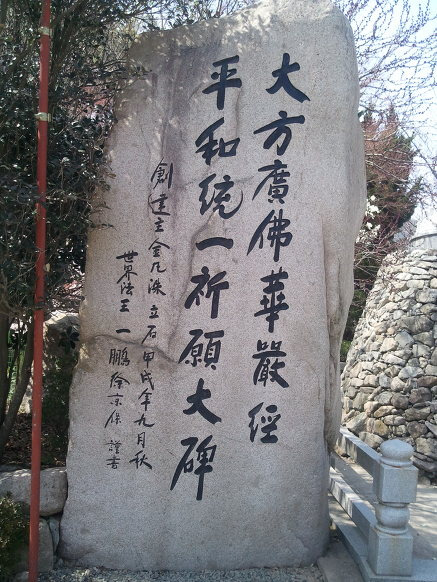 大方廣佛華嚴經
平和統一祈願大碑
創建主金九洙立石甲戌年九月秋
世界法王一鵬徐京保謹書